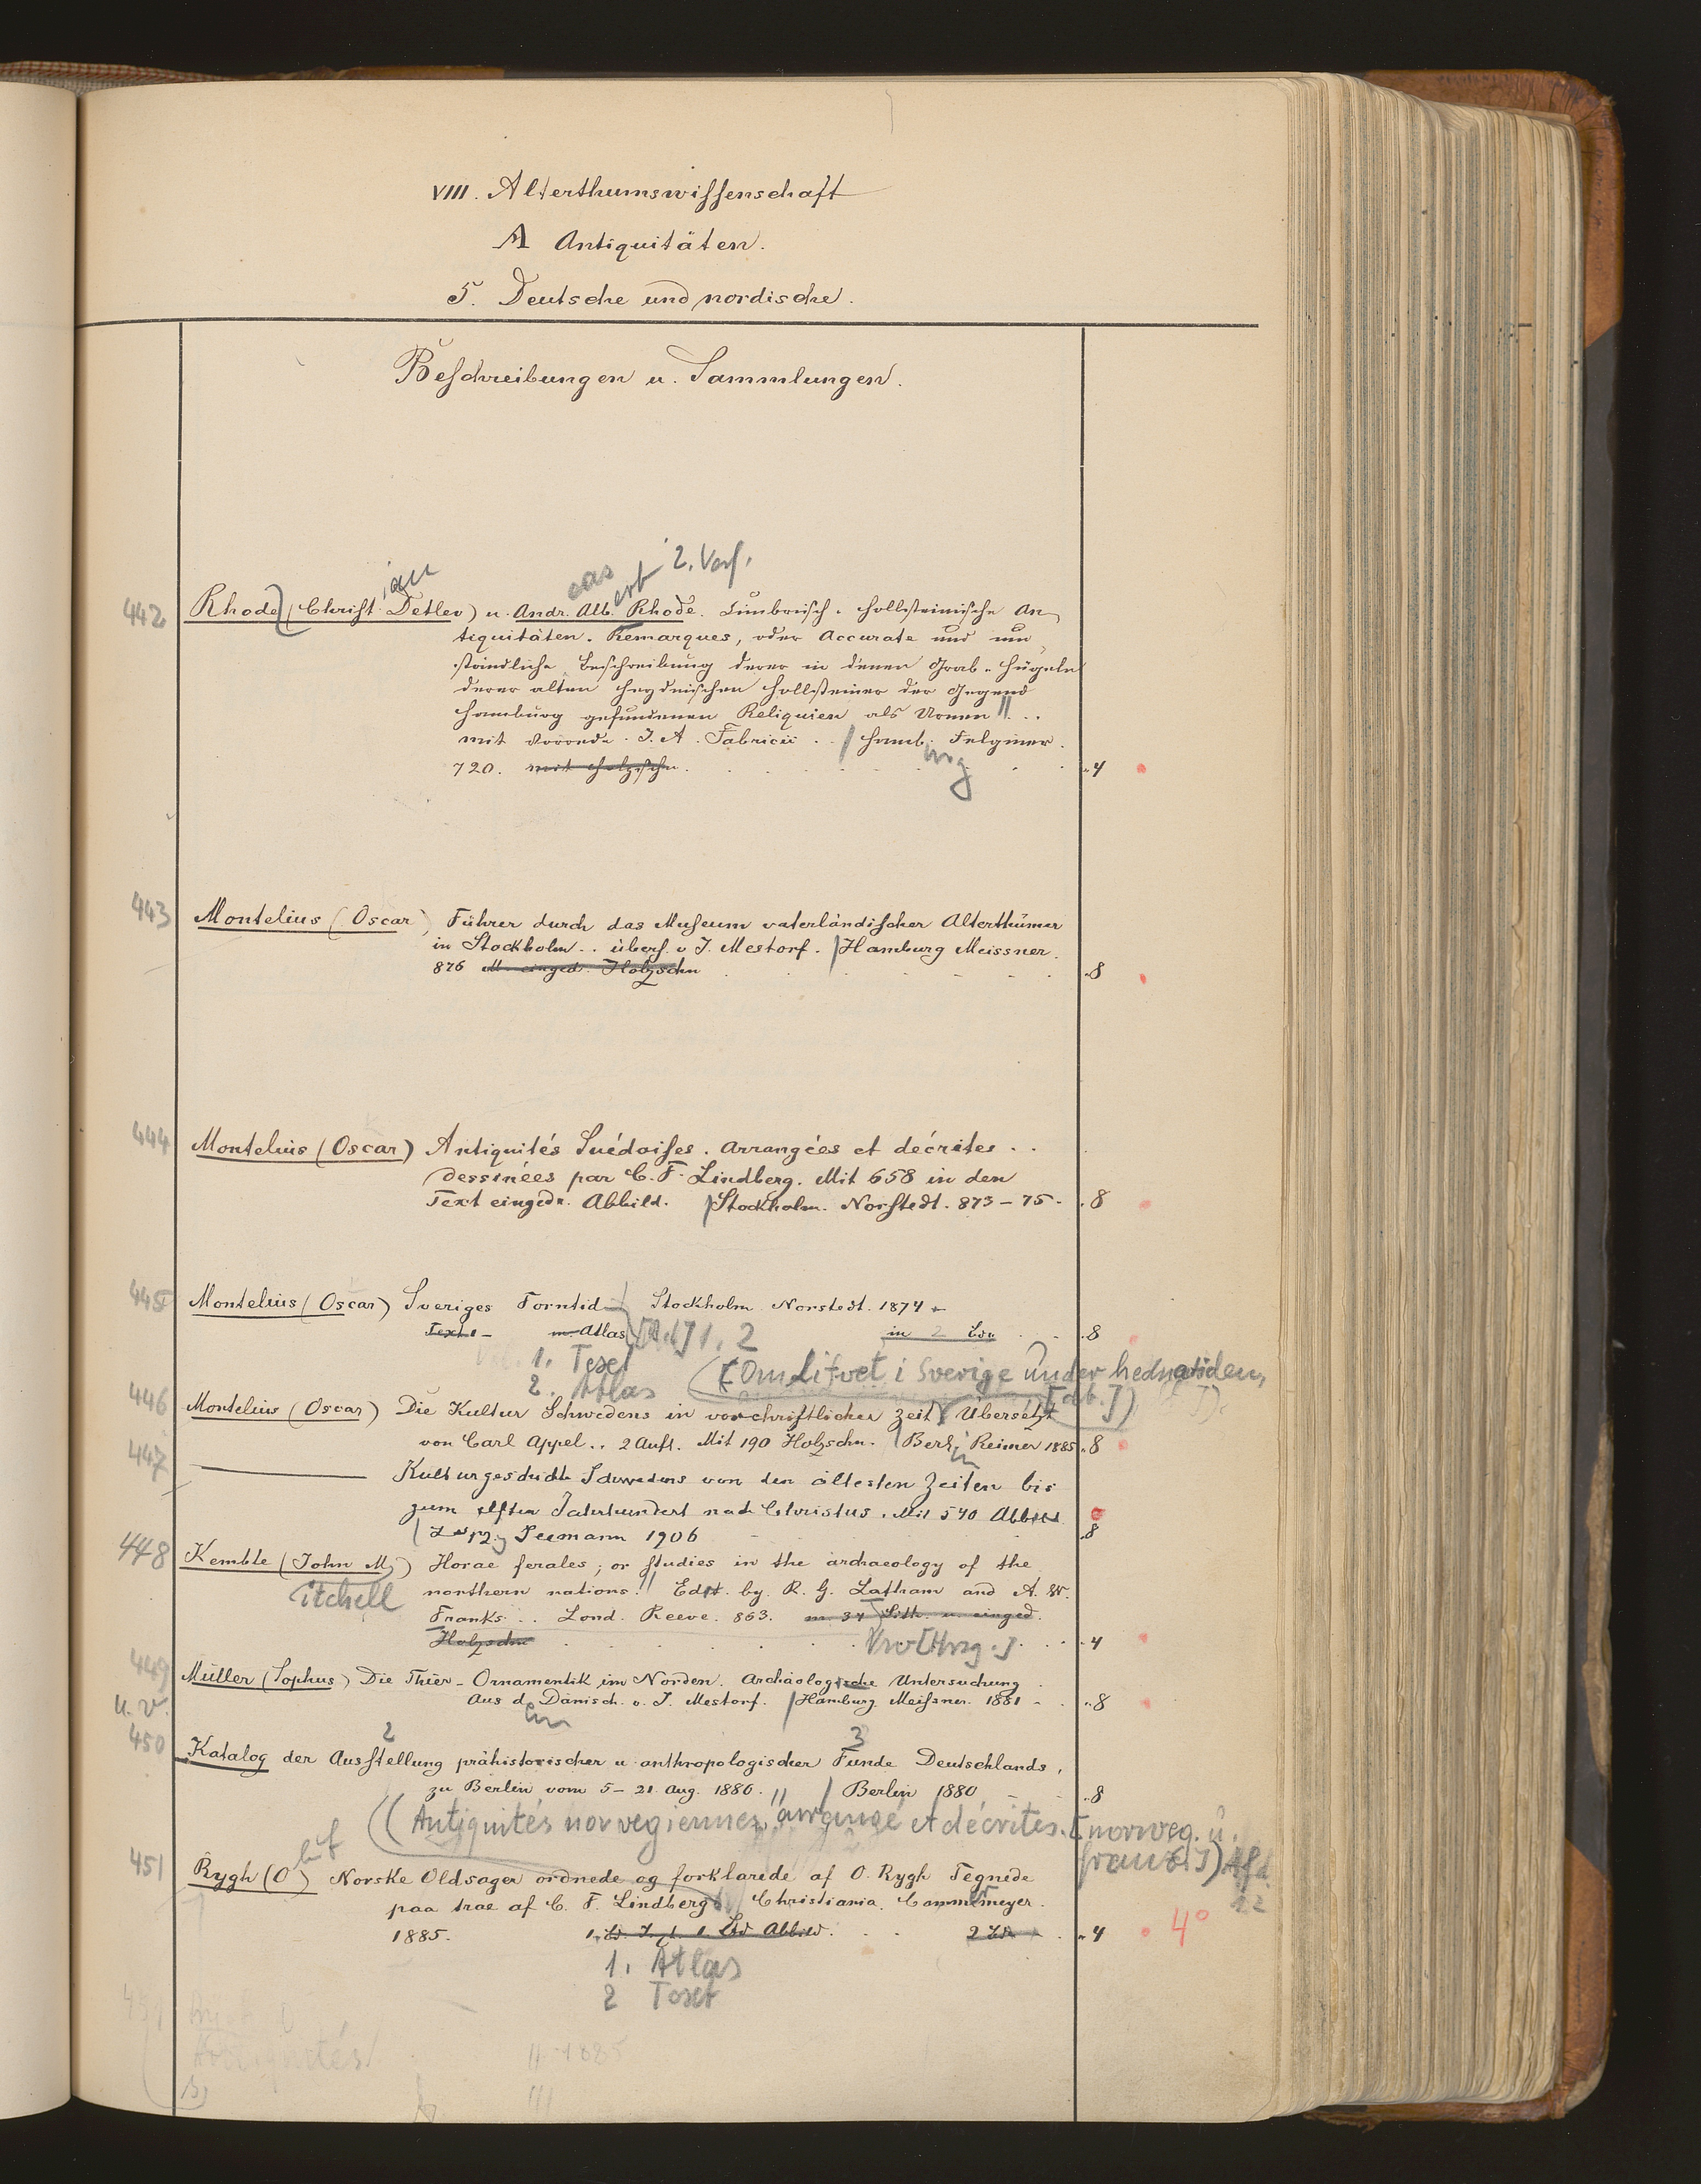 VIII. Alterthumswissenschaft
A Antiquitäten.
5. Deutsche und nordische.
Beschreibungen u. Sammlungen.
ian eas ert 2. Verf.
442 Rhode (Christ. Detlev) u. Andr. Alb. Rhode. Cimbrisch-Hollsteinische An-
tiquitäten. Remarques, oder Accurate und um-
ständliche Beschreibung derer in denen Grab-Hügeln
derer alten heydnischen Hollsteiner der Gegend
Hamburg gefundenen Reliquien als Urnen ...
mit Vorrede J. A. Fabricii .. / Hamb. Felginer.
urg
720. mit Holzschn. 4
443 Montelius (Oscar) Führer durch das Museum vaterländischer Alterthümer
in Stockholm .. übers. v J. Mestorf. / Hamburg Meissner.
876 M. einged. Holzschn 8
444 Montelius (Oscar) Antiquités Suédoises. Arrangées et décrites ..
dessinées par C. F. Lindberg. Mit 658 in den
Text eingedr. Abbild. / Stockholm. Norstedt. 873-75. 8
445 Montelius (Oscar) Sveriges Forntid Stockholm Norstedt. 1874
Text m. Atlas 1. 2 in 2 Bde 8
1. Text
2. Atlas (Om lifvet i Sverige under hednatiden,
446 Montelius (Oscar) Die Kultur Schwedens in vorchristlicher Zeit Übersetzt
von Carl Appel .. 2 Aufl. Mit 190 Holzschn. / Berl. Reimer 1885. 8
in
447 Kulturgeschichte Schwedens von den ältesten Zeiten bis
zum elften Jahrhundert nach Christus. Mit 540 Abbild
Lpzg Seemann 1906 8
448 Kemble (John M.) Horae ferales; or studies in the archaeology of the
itchell northern nations. Edit. by. R. G. Latham and A. W.
Franks .. Lond. Reeve. 863. m. 34 Lith. u. einged.
Holzschn [Hrsg.] 4
449 Müller (Sophus) Die Thier-Ornamentik im Norden. Archäologische Untersuchung
u. V. Aus d. Dänisch. v. J. Mestorf. / Hamburg. Meissner. 1881 8
em
2 3
450 Katalog der Ausstellung prähistorischer u anthropologischer Funde Deutschlands,
zu Berlin vom 5-21 Aug. 1880. / Berlin 1880 8
(Antiquités norvegiennes, arrangé et décrites. [norweg. u.
franz.])
451 Rygh (O) Norske Oldsager ordnede og forklarede af O. Rygh Tegnede
paa trae af C. F. Lindberg Christiania. Cammermeyer.
1885. 1. Bd. T. 1. Bd Abbild. 2 Bde 4 4°
1. Atlas
2 Text
Antiquités
1885